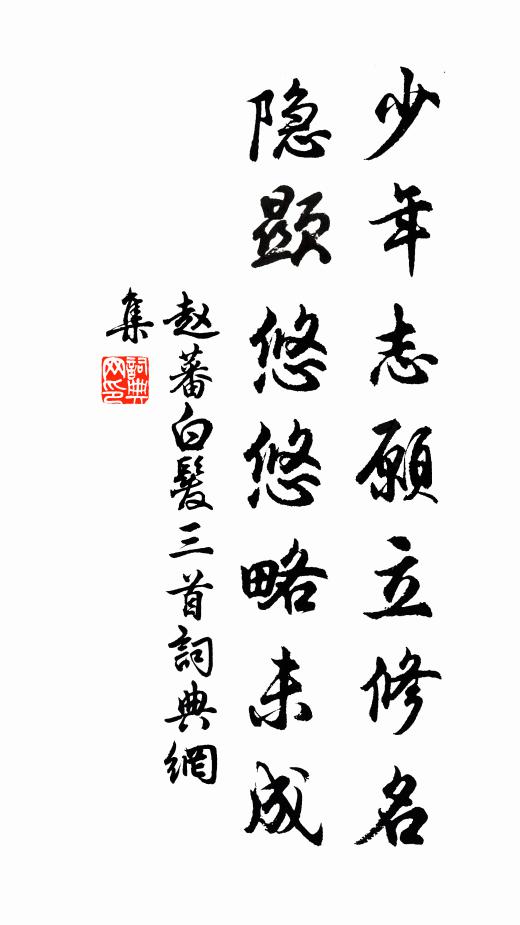 少年志愿立修名
隐顕悠悠略未成
赵蕃白髮三首詞典網
集
詞典
网印